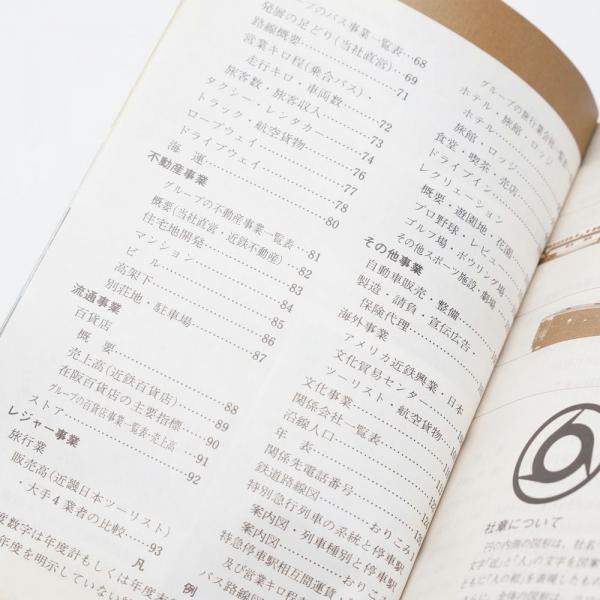 ープのバス事業一覧表…68
発展の足どり(当社直営)…69
路線概要………71
営業キロ程(乗合バス)・
走行キロ・車両数………72
旅客数・旅客収入………73
タクシー・レンタカー………74
トラック・航空貨物………76
ロープウェイ………77
ドライブウェイ………78
海運………80
不動産事業
グループの不動産事業一覧表…81
概要(当社直営・近鉄不動産)…82
住宅地開発………83
マンション………84
ビル………85
高架下………86
別荘地・駐車場………87
流通事業
百貨店
概要………88
売上高(近鉄百貨店)………89
在阪百貨店の主要指標………90
グループの百貨店事業一覧表・売上高…91
ストア………92
レジャー事業
旅行業
販売高(近畿日本ツーリスト)
・大手4業者の比較………93
凡例
度数字は年度計もしくは年度末
年度を明示していない
グループの旅行業会社一覧表
ホテル・旅館・ロッジ
ホテル
旅館・ロッジ
食堂・喫茶・売店
ドライブイン
レクリエーション
概要・遊園地・花園
プロ野球・レビュー
ゴルフ場・ボウリング場
その他スポーツ施設・劇場
その他事業
自動車販売・整備
製造・請負・宣伝広告・
保険代理
海外事業
アメリカ近鉄興業・日本
文化貿易センター
ツーリスト・航空貨物
文化事業
関係会社一覧表
沿線人口
年表
関係先電話番号
鉄道路線図………おりこみ
特別急行列車の系統と停車駅
案内図・列車種別と停車駅
案内図………おりこみ
特急停車駅相互間運賃・
及び営業キロ程
バス路線図
社章について
円の内側の図形は、社名
文字「近」と「人」の文字を図案
ともに「人の和」を表現したもの
さらに、全体の図形は、